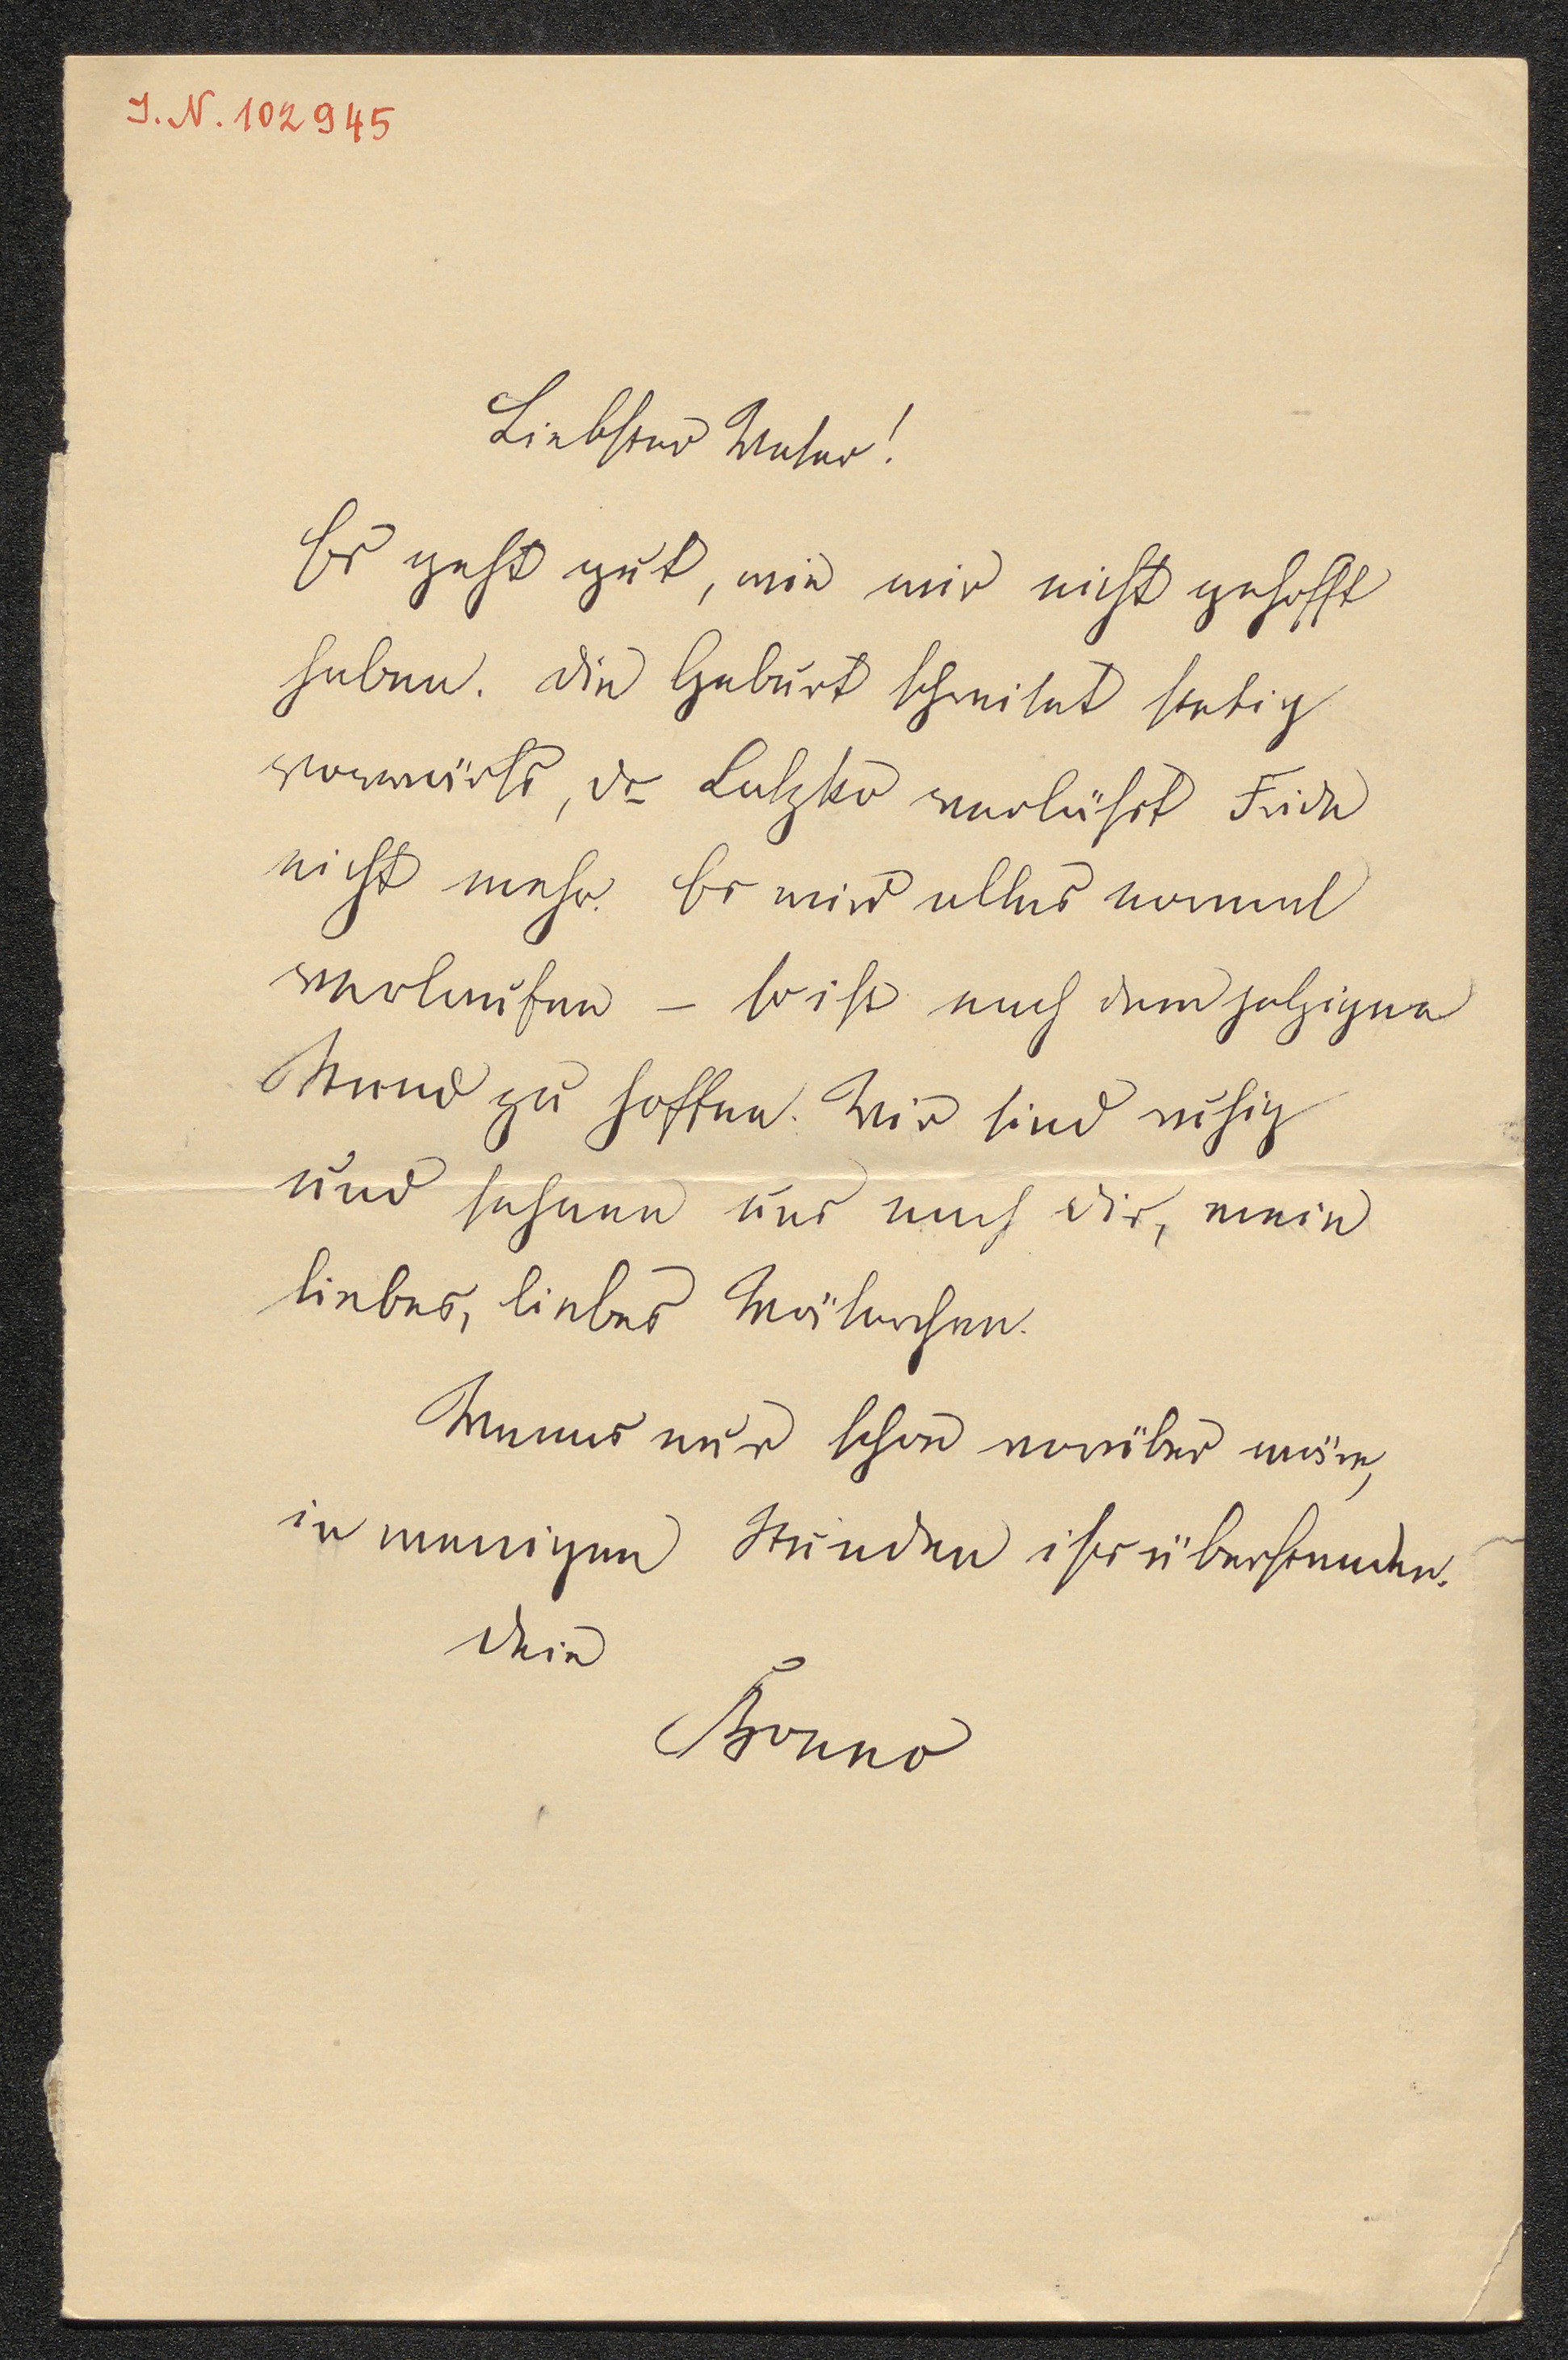 I.N. 102945
Liebster Vater!
Es geht gut, wie wir nicht gehofft
haben. Die Geburt schreitet stetig
vorwärts, Dr Latzko verläßt Frida
nicht mehr. Es wird alles normal
verlaufen – so ist nach dem jetzigen
Stand zu hoffen. Wir sind ruhig
und sehnen uns nach dir, mein
liebes, liebes Väterchen.
Wenns nur schon vorüber wäre,
in wenigen Stunden ists überstanden.
Dein
Bonno